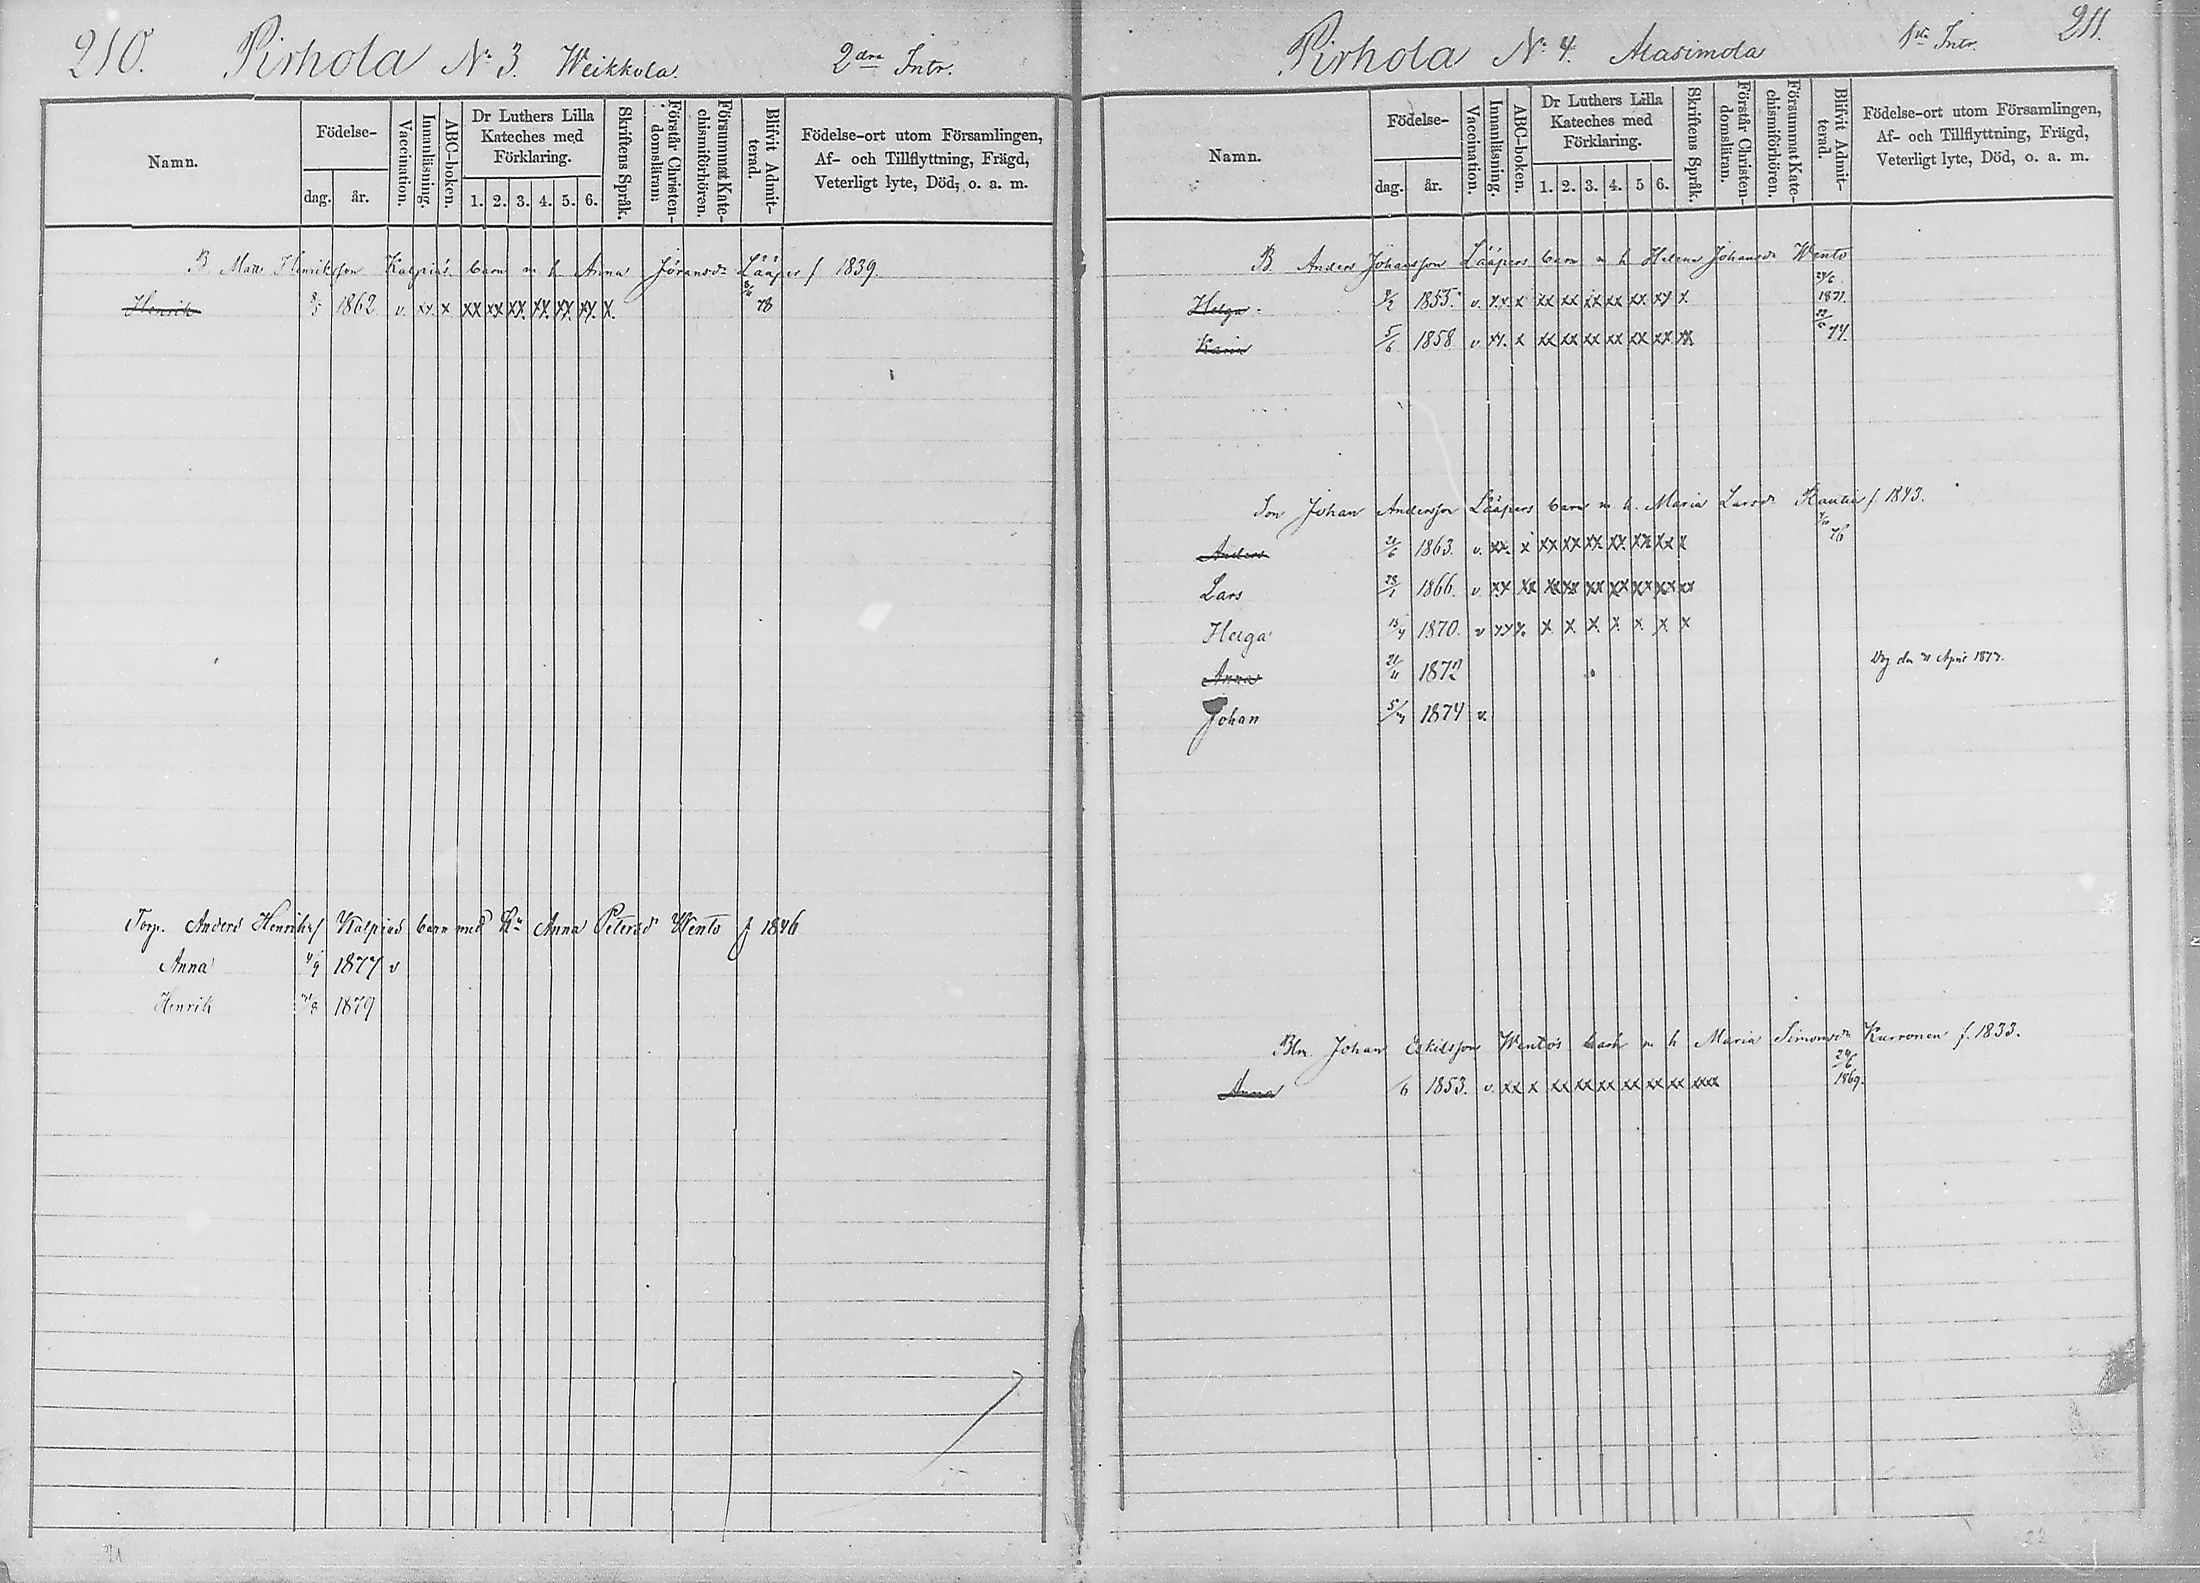 210. Pirhola No 3. Weikkola. 2dra Intr.
Namn.
Födelse-
dag. år.
Vaccination.
Innanläsning.
ABC-boken.
Dr Luthers Lilla Kateches med Förklaring.
1. 2. 3. 4. 5. 6.
Skriftens Språk.
Förstår Christendomsläran.
Försummat Katechismiförhören.
Blifvit Admitterad.
Födelse-ort utom Församlingen, Af- och Tillflyttning, Frägd, Veterligt lyte, Död, o. a. m.
B Matts Henriksson Kalpias barn m h Anna Jöransdr Lääper f 1839.
Henrik 8/5 1862 v. xx. x xx xx xx. xx. xx. xx. x. 78
Torp. Anders Henrikss Kalpias barn med Hu Anna Petersd Wento f 1846
Anna 4/9 1877 v
Henrik /8 1879
Pirhola No 4. Alasimola 1sta Intr. 211.
Namn.
Födelse-
dag. år.
Vaccination.
Innanläsning.
ABC-boken.
Dr Luthers Lilla Kateches med Förklaring.
1. 2. 3. 4. 5 6.
Skriftens Språk.
Förstår Christendomsläran.
Försummat Katechismiförhören.
Blifvit Admitterad.
Födelse-ort utom Församlingen, Af- och Tillflyttning, Frägd, Veterligt lyte, Död, o. a. m.
B. Anders Johansson Lääpers barn m h Helena Johansdr Wento
Helga 8/2 1855. v. x.x. x xx xx xx xx xx xx x 1871.
Karin 5/6 1858 v xx. x xx xx xx xx xx xx xx 74.
Son Johan Andersson Lääpers barn m h. Maria Larsdr Rautia f. 1843.
Anders 21/6 1863. v. xx. x xx xx xx xx xx xx x 76
Lars 28/1 1866. v. xx xx xx xx xx xx xx xx xx
Helga 13/4 1870. v xx x x x x x x x x
Anna 21/11 1872 Dog den April 1877.
Johan 1874 v.
Bln Johan Eskilsson Wentos barn m h Maria Simonsdr Kurronen f. 1833.
Anna /6 1853. v. xx x xx xx xx xx xx xx xxx 24/6 1869.